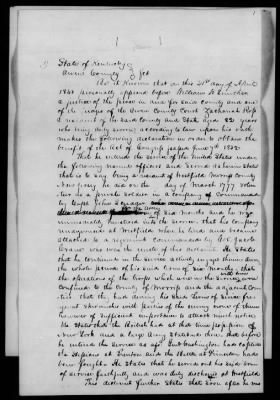 State of Kentucky
Owen County } Sct
Be it Known that on this 21st day of April
1840 personally appeared before William
a Justice of the peace in and for said county and one
of the Judges of the Owen County Court Zachariah Ross
a resident of the said County and State aged 82 years
who being duly sworn according to law upon his oath
makes the following declaration in order to obtain the
benefit of the Act of Congress passed June 7th 1832
That he entered the service of the United States under
the following named officers and served as herein states
that is to say being a resident of Westfield County
New Jersey he did on the day of March 1777 volun
teer as a private soldier in a company of commanded
by Capt John
of Six months and he was
immediately mustered into the service that the company
rendezvoused at Westfield when he lived and became
attached to a regiment commanded by Col Jacob
Crane was was the name of this declarant. He States
that he continued in the service actively engaged during
the whole period of his said term of Six months, that
the operations of the Corps which were
confined to the County of Morris and the adjacent Coun
ties that they had during his said term of Six months
great skirmishes with parties of the enemy none of them
however of sufficient importance to attract much notice
He States that the British had at that time possession of
New York and a large Army Stationed there that before
he entered the service as afsd Genl Washington had captured
the Hessians at Trenton and the Battle at Princeton had
been fought. He States that he served out his said term
of service faithfully and was duly discharged at Westfield
This declarant further States that soon after he was